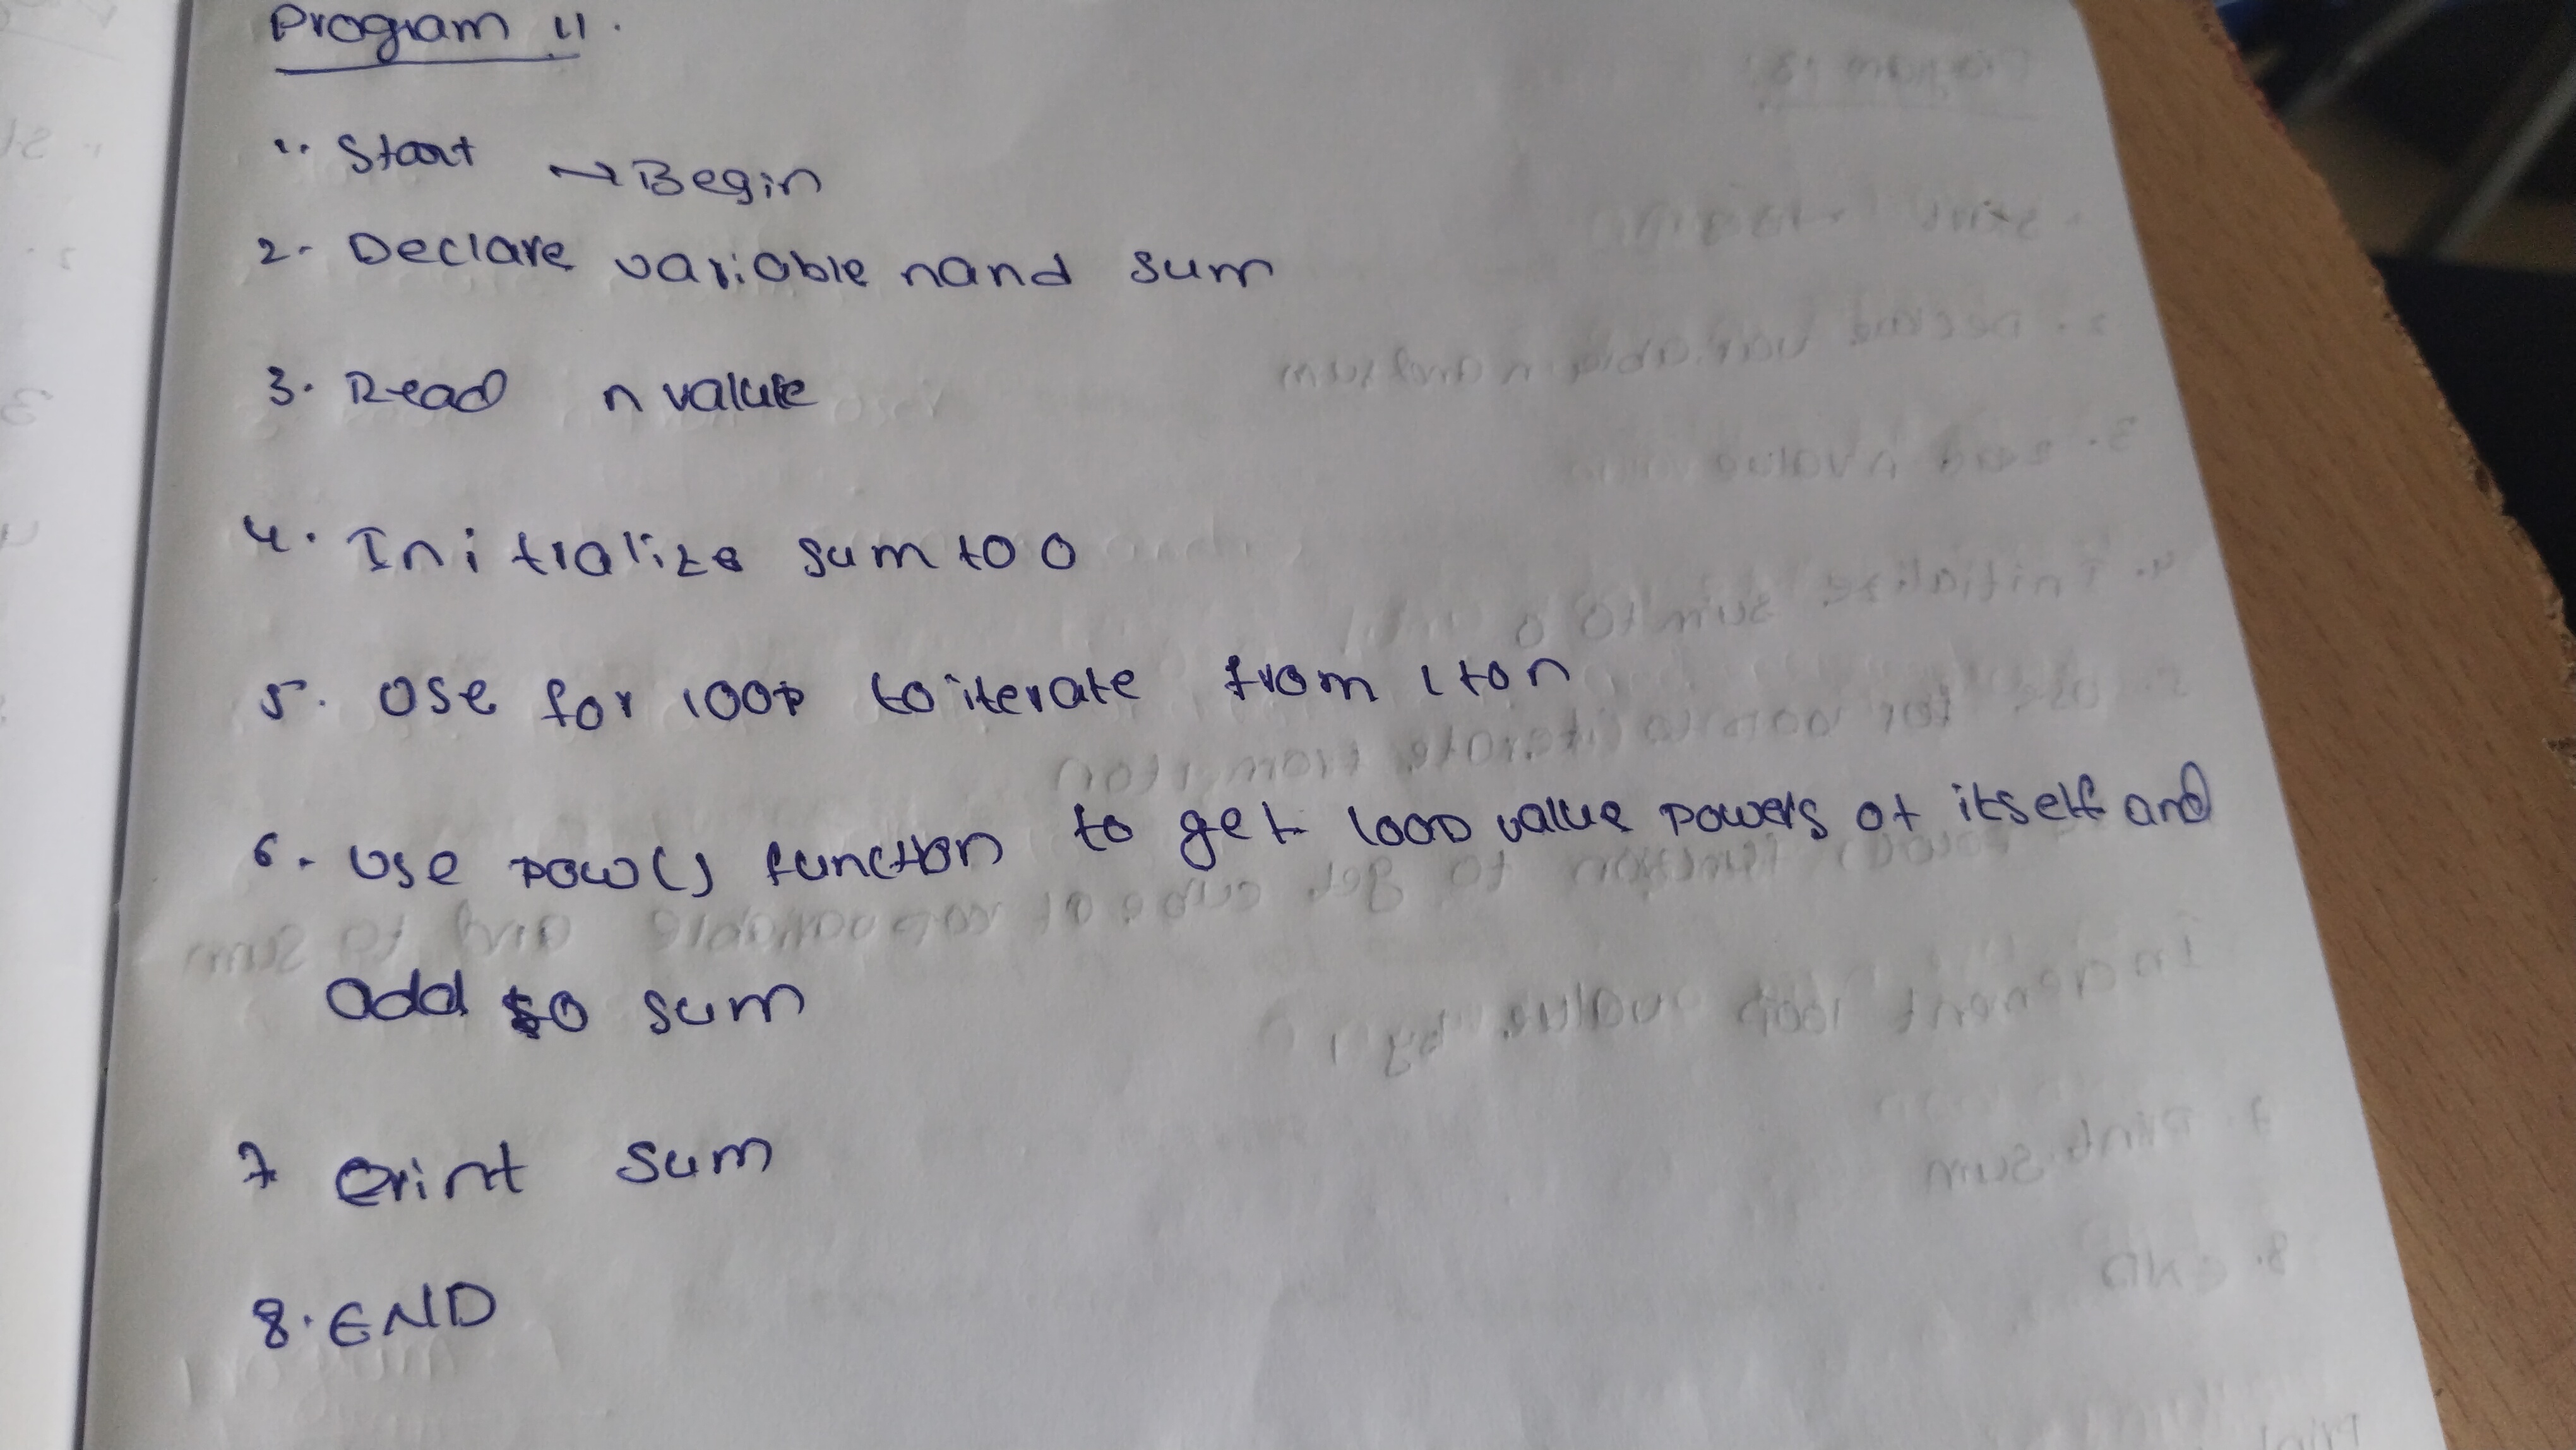 Program 11.
1. Start → Begin
2. Declare variable n and sum
3. Read n value
4. Initialize sum to 0
5. Use for loop to iterate from 1 to n
6. Use pow() function to get loop value powers of itself and
add to sum
7 Print sum
8. END